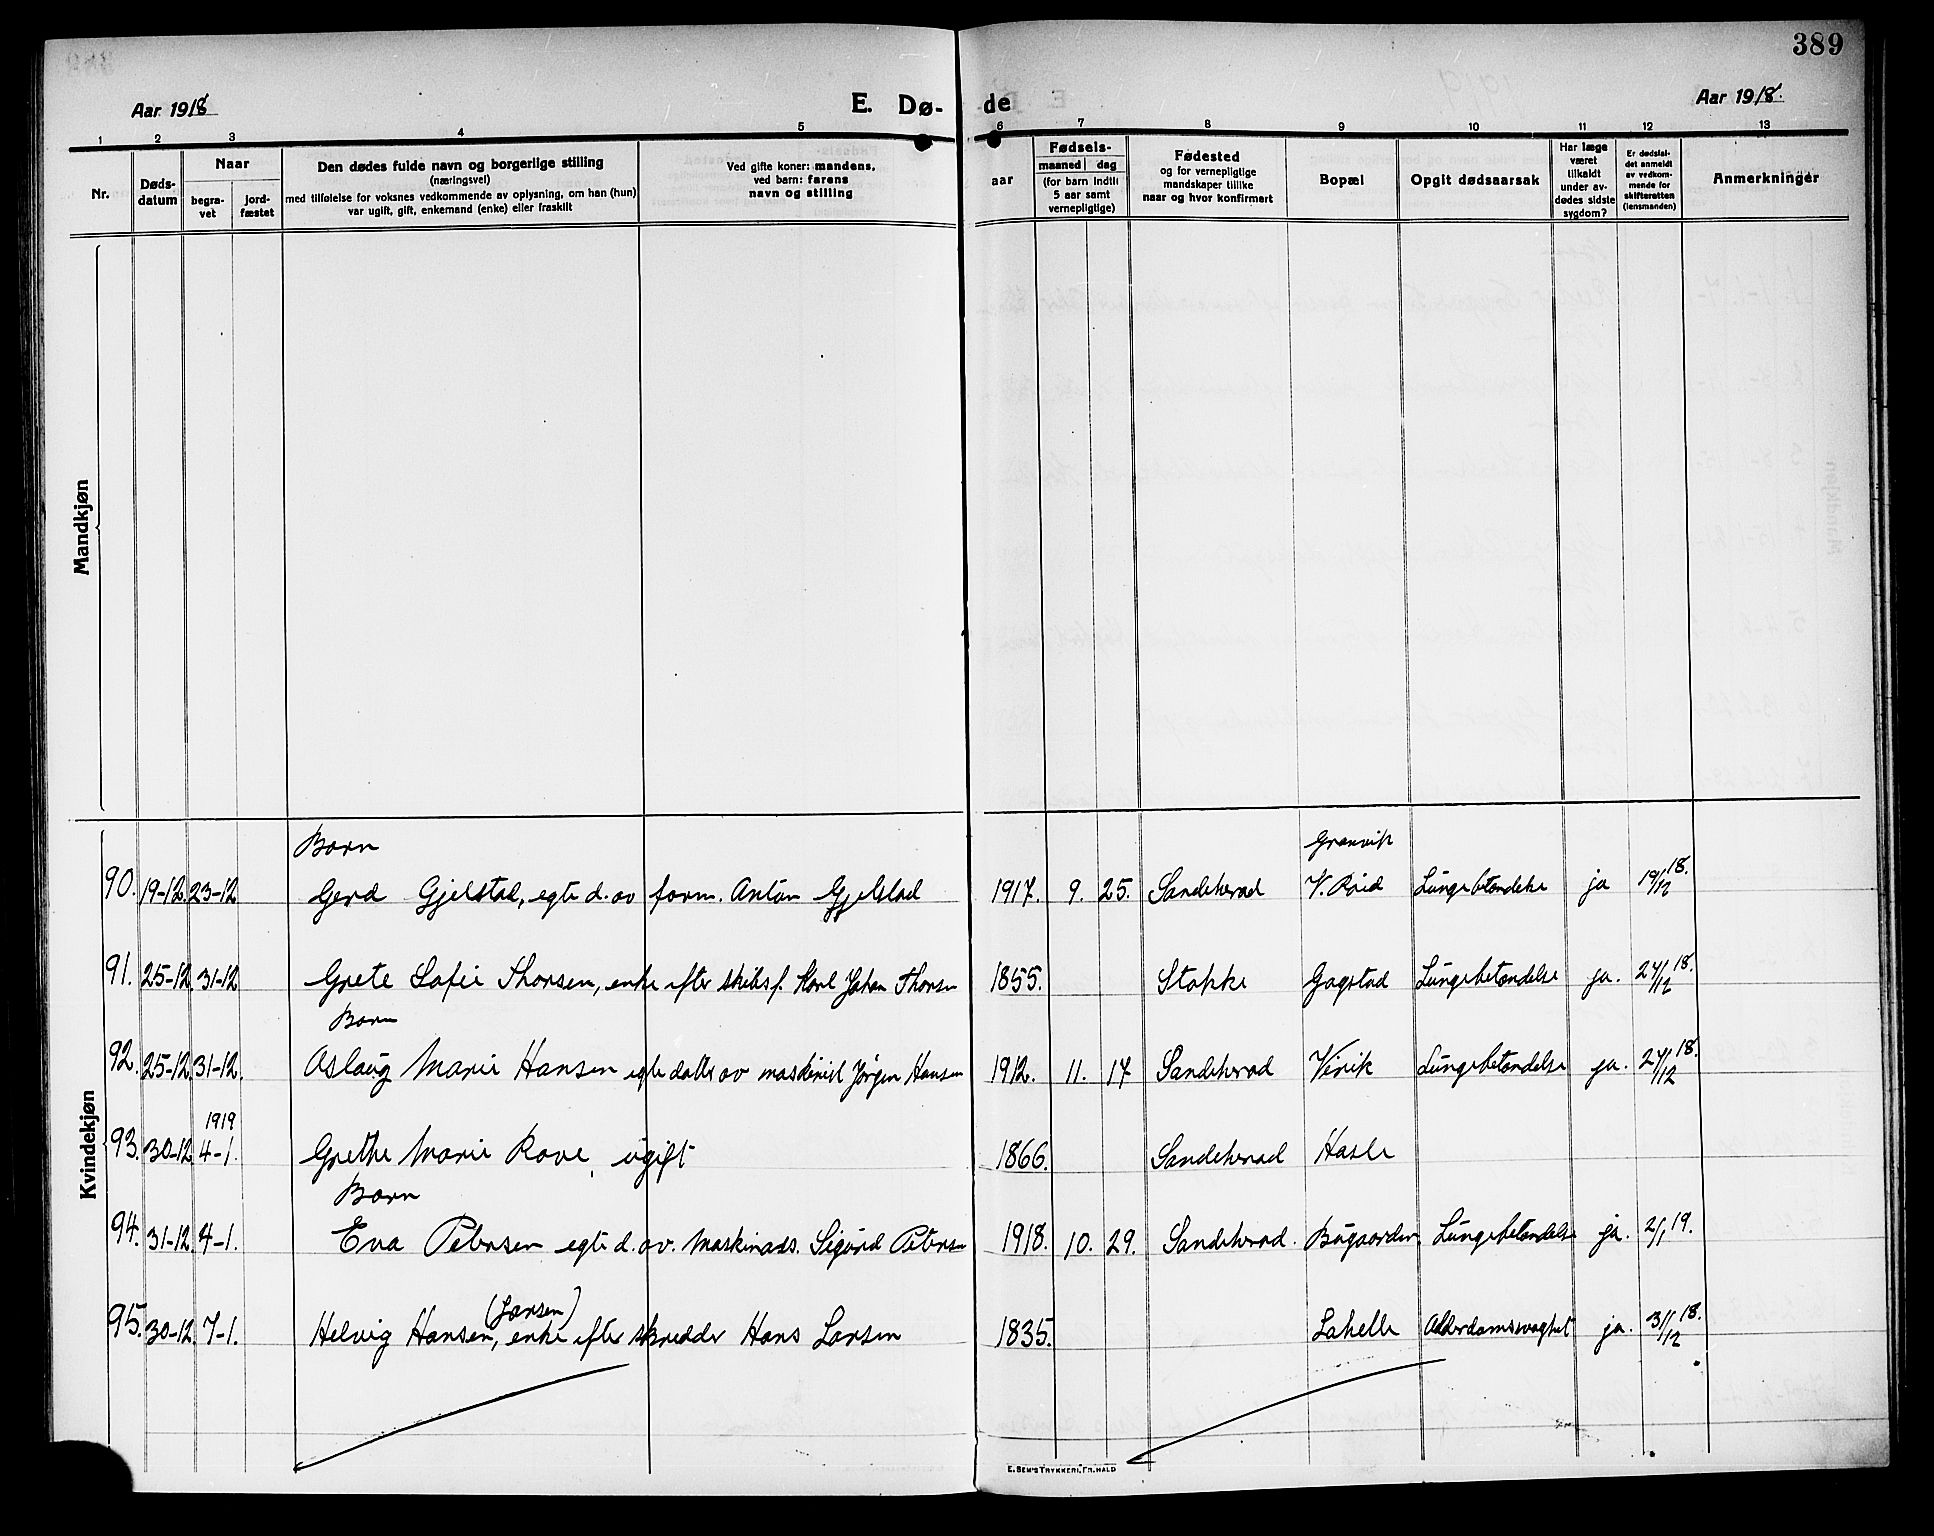 389
Aar 1918
E. Dø-
de
Aar 1918.
1 2 3 4 5 6 7 8 9 10 11 12 13
Nr.
Døds-
datum
Naar
begra-
vet
jord-
fæstet
Den dødes fulde navn og borgerlige stilling
(næringsvei)
med tilføielse for voksnes vedkommende av oplysning, om han (hun)
var ugift, gift, enkemand (enke) eller fraskilt
Ved gifte koner: mandens,
ved barn: farens
navn og stilling
aar
Fødsels-
maaned dag
(for barn indtil
5 aar samt
vernepligtige)
Fødested
og for vernepligtige
mandskaper tillike
naar og hvor konfirmert
Bopæl
Opgit dødsaarsak
Har læge
været
tilkaldt
under av-
dødes sidste
sygdom?
Er dødsfal-
det anmeldt
av vedkom-
mende for
skifteretten
(lensmanden)
Anmerkninger
Mandkjøn
Kvindekjøn
Barn
Granvik
90. 19-12. 23-12 Gerd Gjelstad, egte d. av form. Anton Gjelstad 1917. 9. 25. Sandeherad V. Røid Lungebetændelse ja 19/12 18.
91. 25-12 31-12 Grete Sofie Thorsen, enke efter skibsf. Karl Johan Thorsen 1855. Stokke Gogstad Lungebetændelse ja. 27/12 18.
Barn
92. 25-12 31-12. Aslaug Marie Hansen egte datter av maskinist Jørgen Hansen 1912. 11. 17 Sandeherad Virik Lungebetændelse ja. 27/12 18.
1919
93. 30-12 4-1. Grethe Marie Rove, ugift 1866. Sandeherad Hasle
Barn
94. 31-12. 4-1. Eva Petersen egte d. av. Maskinass. Sigurd Petersen 1918. 10. 29. Sandeherad. Bugaarden. Lungebetændelse ja. 2/1 19.
(Larsen)
95. 30-12 7-1. Helvig Hansen, enke efter skrædder Hans Larsen 1835. Lahelle Alderdomssvaghet ja. 31/12 18.
E. SEM'S TRYKKERI, FR.HALD